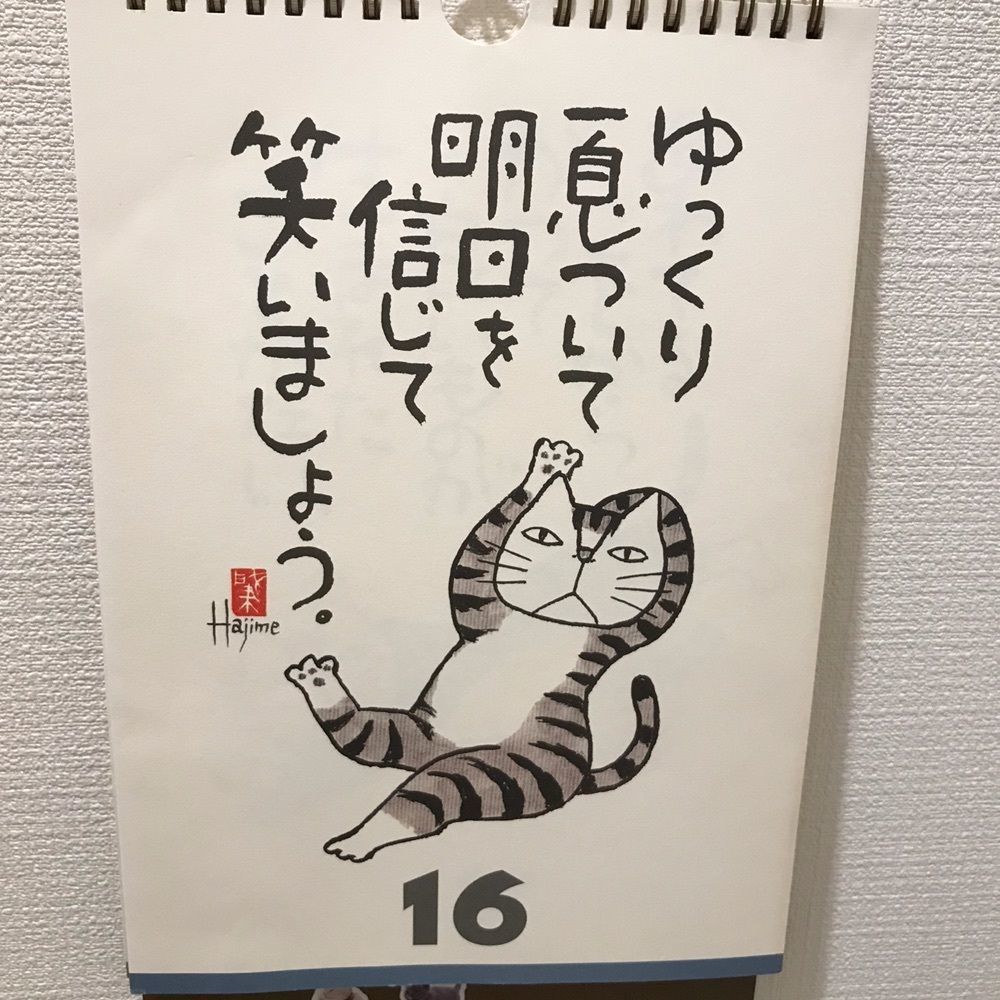 ゆっくり
一息ついて
明日を
信じて
笑いましょう。
Hajime
16